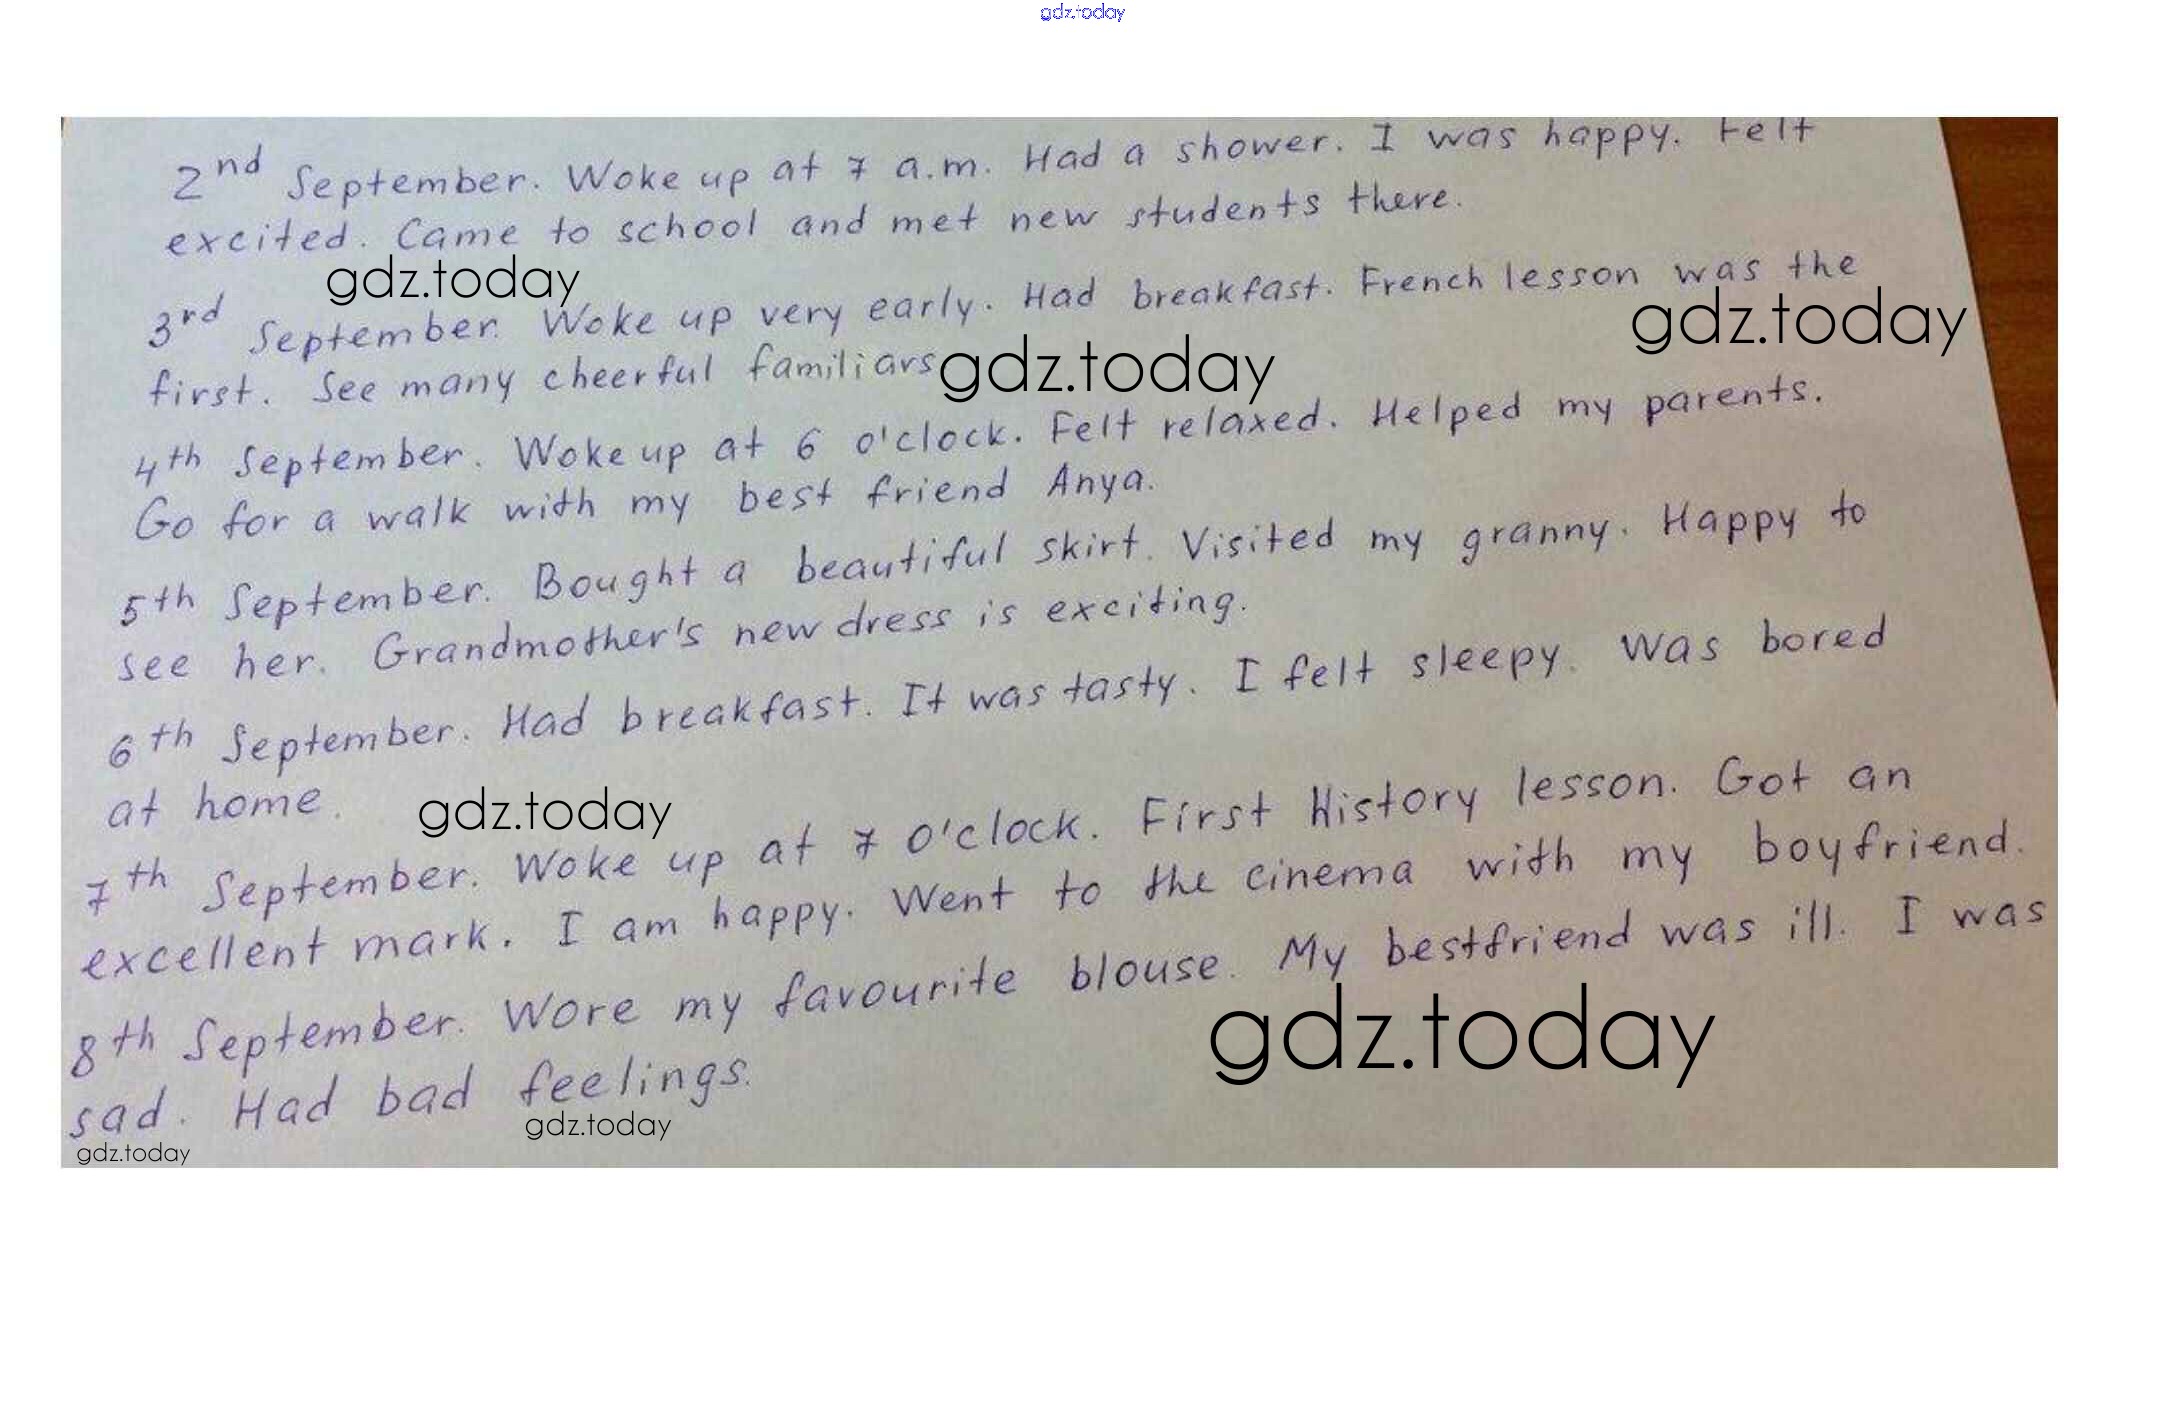 gdz.today
2nd September. Woke up at 7 a.m. Had a shower. I was happy. Felt
excited. Came to school and met new students there.
gdz.today
3rd September. Woke up very early. Had breakfast. French lesson was the
gdz.today
first. See many cheerful familiars
gdz.today
4th September. Woke up at 6 o'clock. Felt relaxed. Helped my parents.
Go for a walk with my best friend Anya.
5th September. Bought a beautiful skirt. Visited my granny. Happy to
see her. Grandmother's new dress is exciting.
6th September. Had breakfast. It was tasty. I felt sleepy. Was bored
at home.
gdz.today
7th September. Woke up at 7 o'clock. First History lesson. Got an
excellent mark. I am happy. Went to the cinema with my boyfriend.
8th September. Wore my favourite blouse. My bestfriend was ill. I was
gdz.today
sad. Had bad feelings.
gdz.today
gdz.today